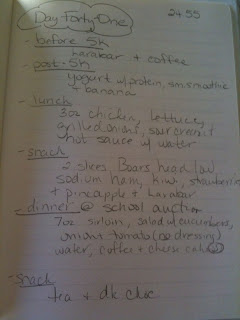 Day Forty-One
24.55
- before 5k
Larabar + coffee
- post-5k
yogurt w/ protein, sm. smoothie
+ banana
- lunch
3oz chicken, lettuce,
grilled onions, sour cream +
hot sauce w/ water
- snack
2 slices, Boars head low
sodium ham, kiwi, strawberries
+ pineapple + Larabar
- dinner @ school auction
7oz sirloin, salad w/ cucumbers,
onions tomato (no dressing)
water, coffee + cheese cake
- snack
tea + dk choc